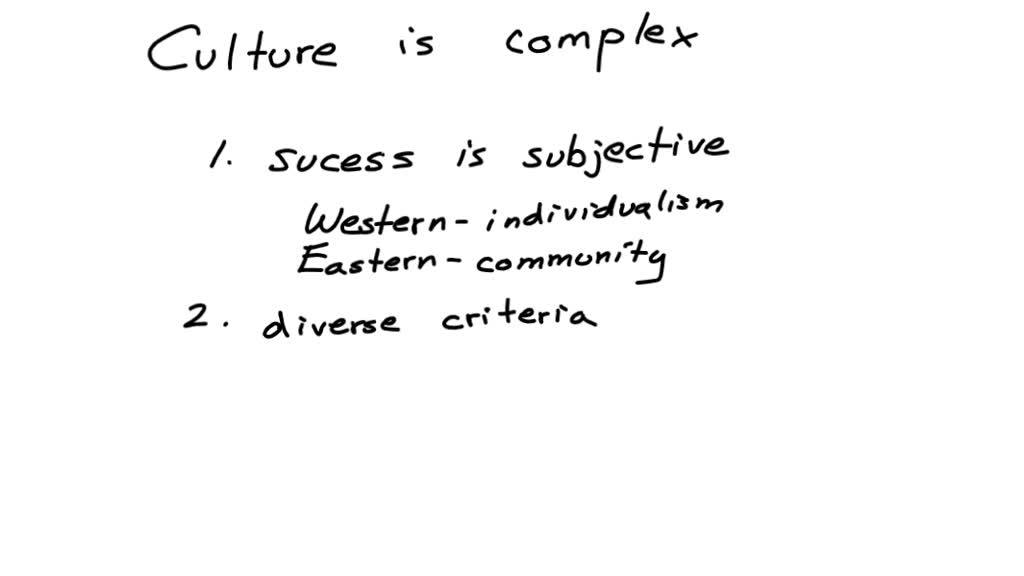 Culture is complex
1. sucess is subjective
Western - individualism
Eastern - community
2. diverse criteria